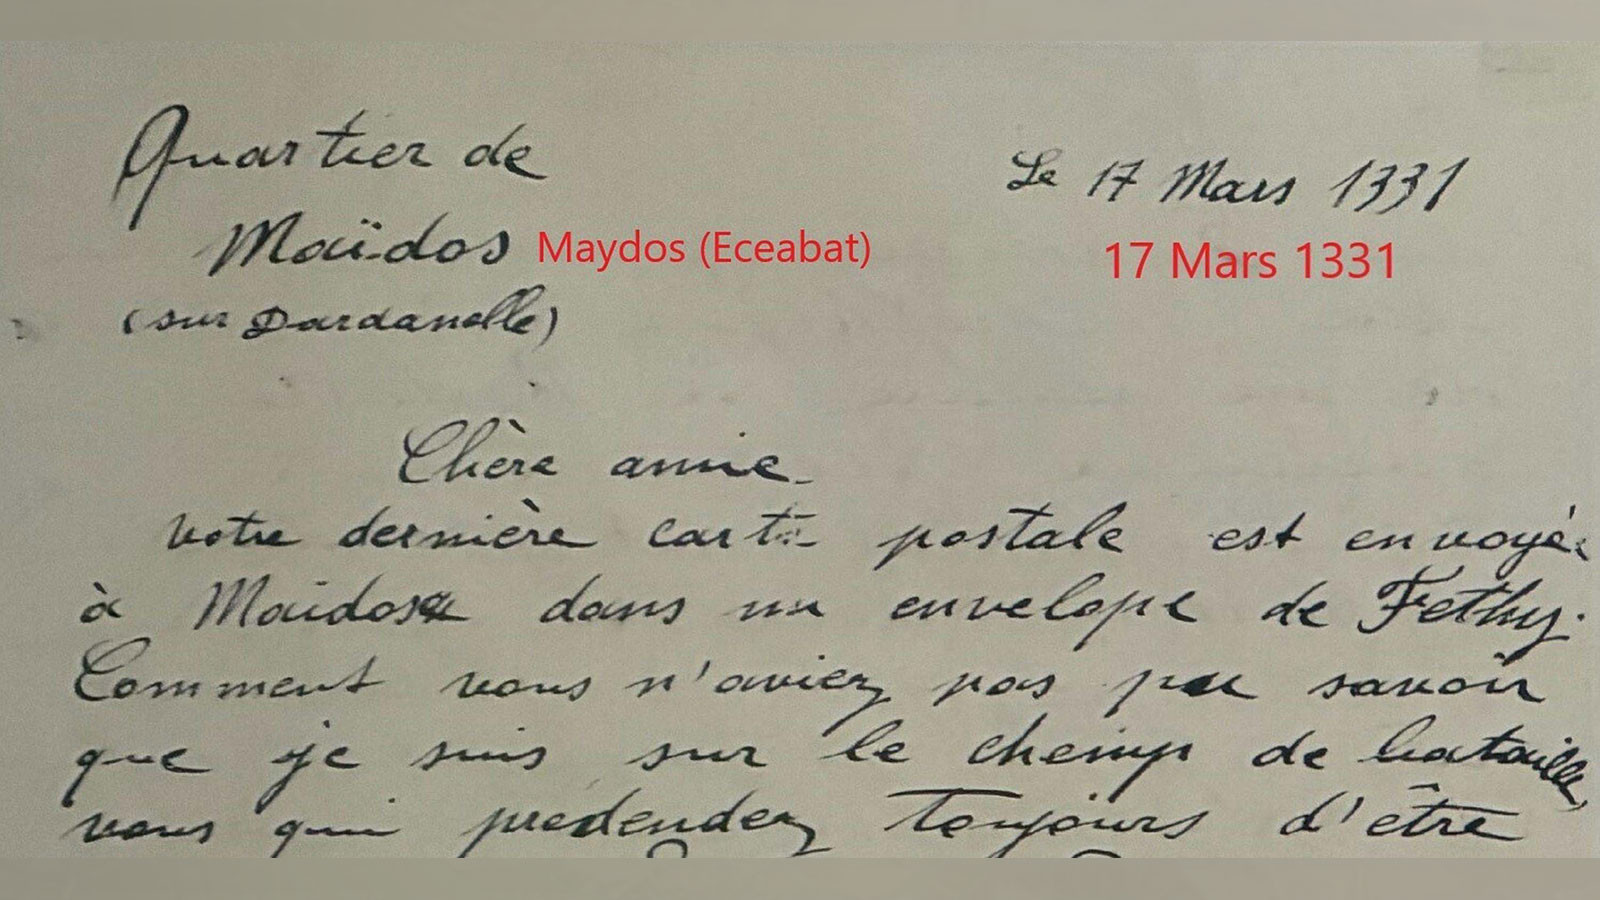 Quartier de
Le 17 Mars 1331
Maïdos
Maydos (Eceabat)
17 Mars 1331
(sur Dardanelle)
Chère amie
votre dernière carte postale est envoyée
à Maidos dans un envelope de Fethy.
Comment vous n'aviez pas pu savoir
que je suis sur le chemp de bataille,
vous qui predendez toujours d'être